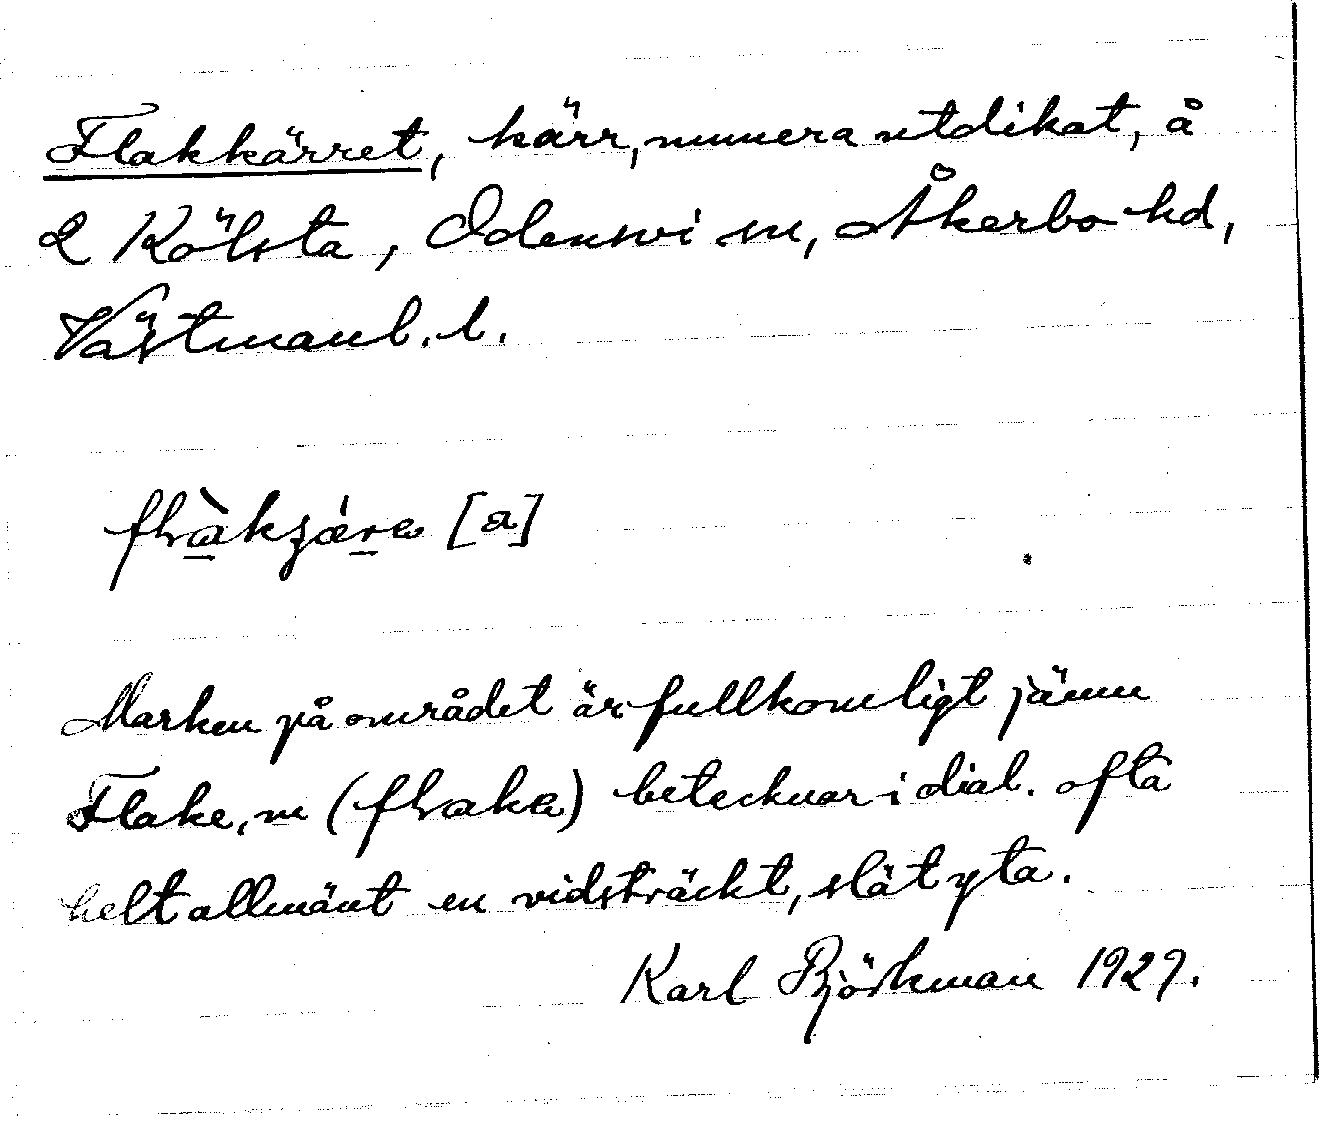 Flakkärret, kärr, numera utdikat, å
2 Kölsta, Odensvi sn, Åkerbo hd,
Västmanl. l.
[a]
Marken på området är fullkomligt jämn
Flake, m (flaka) betecknar i dial. ofta
helt allmänt en vidsträckt, slät yta.
Karl Björkman 1929.